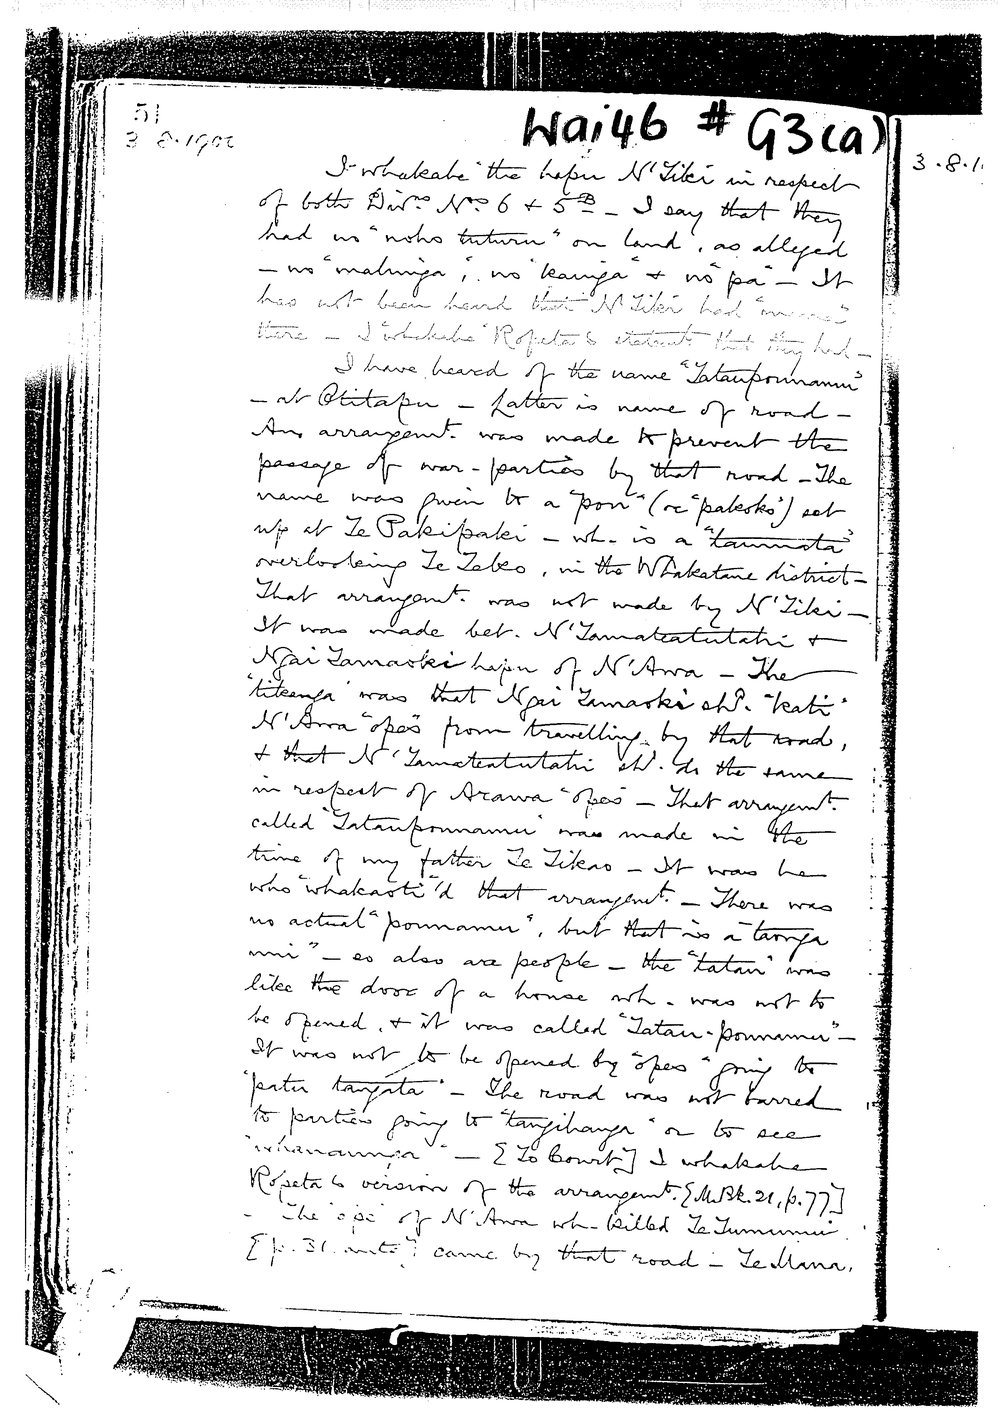 51
3·8·1900
Wai 46 # G3(a)
3·8·1
I "whakahe" the hapu N'Tiki in respect
of both Divns. Nos. 6 & 5B – I say that they
had no "noho tuturu" on land, as alleged
– no "mahinga", no "kainga" & no "pa" – It
has not been heard that N'Tiki had "mana"
there – I "whakahe" Ropeta's statemt. that they had –
I have heard of the name "Tataupounamu"
– at Otitapu – Latter is name of road –
An arrangemt. was made to prevent the
passage of war-parties by that road – The
name was given to a "pou" (or "pakoko") set
up at Te Pakipaki – wh. is a "taumata"
overlooking Te Teko, in the Whakatane district –
That arrangemt. was not made by N'Tiki –
It was made bet. N'Tamateatutahi &
Ngai Tamaoki hapu of N'Awa – The
"tikanga" was that Ngai Tamaoki shd. "kati"
N'Awa "opes" from travelling by that road,
& that N'Tamateatutahi shd. do the same
in respect of Arawa "opes" – That arrangemt.
called "Tataupounamu" was made in the
time of my father Te Tikao – It was he
who "whakaoti"'d that arrangemt. – There was
no actual "pounamu", but that is a "taonga
nui" – so also are people – the "tatau" was
like the door of a house wh. was not to
be opened, & it was called "Tatau-pounamu" –
It was not to be opened by "opes" going to
"patu tangata" – The road was not barred
to parties going to "tangihanga" or to see
"whanaunga" – [To Court] I whakahe
Ropeta's version of the arrangemt. [M.Bk. 21, p. 77]
– The "ope" of N'Awa wh. killed Te Tumumui
[p. 31 ante] came by that road – Te Mana,